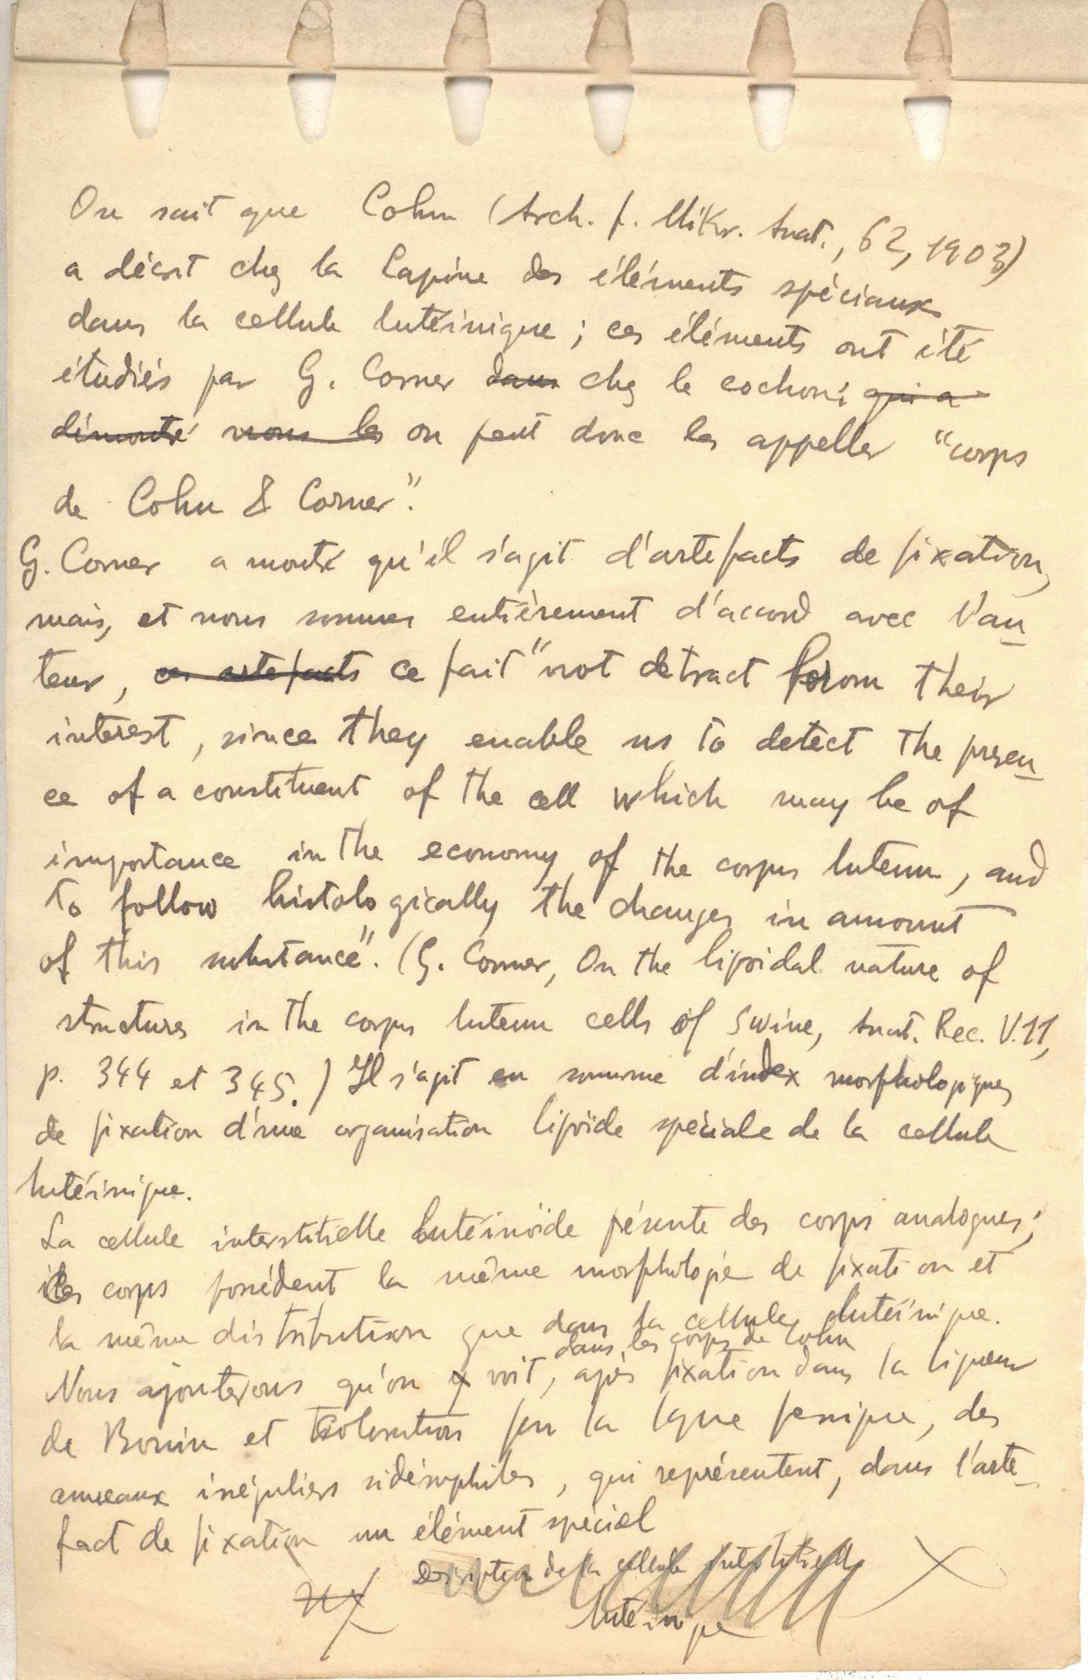 On sait que Cohn (Arch. f. Mikr. Anat., 62, 1903)
a décrit chez la lapine des éléments spéciaux
dans la cellule lutéinique ; ces éléments ont été
étudiés par G. Corner dans chez le cochon ; qui a
démontré nous les on peut donc les appeller "corps
de Cohn & Corner".
G. Corner a montré qu'il s'agit d'artefacts de fixation,
mais, et nous sommes entièrement d'accord avec l'au-
teur, ces artefacts ce fait "not detract from their
interest, since they enable us to detect the presen-
ce of a constituent of the cell which may be of
importance in the economy of the corpus luteum, and
to follow histologically the changes in amount
of this substance". (G. Corner, On the lipoidal nature of
structures in the corpus luteum cells of swine, Anat. Rec. V. 11,
p. 344 et 345.) Il s'agit en somme d'index morphologiques
de fixation d'une organisation lipoïde spéciale de la cellule
lutéinique.
La cellule interstitielle lutéinoïde présente des corps analogues ;
les corps possèdent la même morphologie de fixation et
la même distribution que dans la cellule lutéinique.
dans les corps de Cohn
Nous ajouterons qu'on y voit, après fixation dans la liqueur
de Bouin et coloration par la laque ferrique, des
anneaux irréguliers sidérophiles, qui représentent, dans l'arte-
fact de fixation un élément spécial
Description de la cellule interstitielle
lutéinique